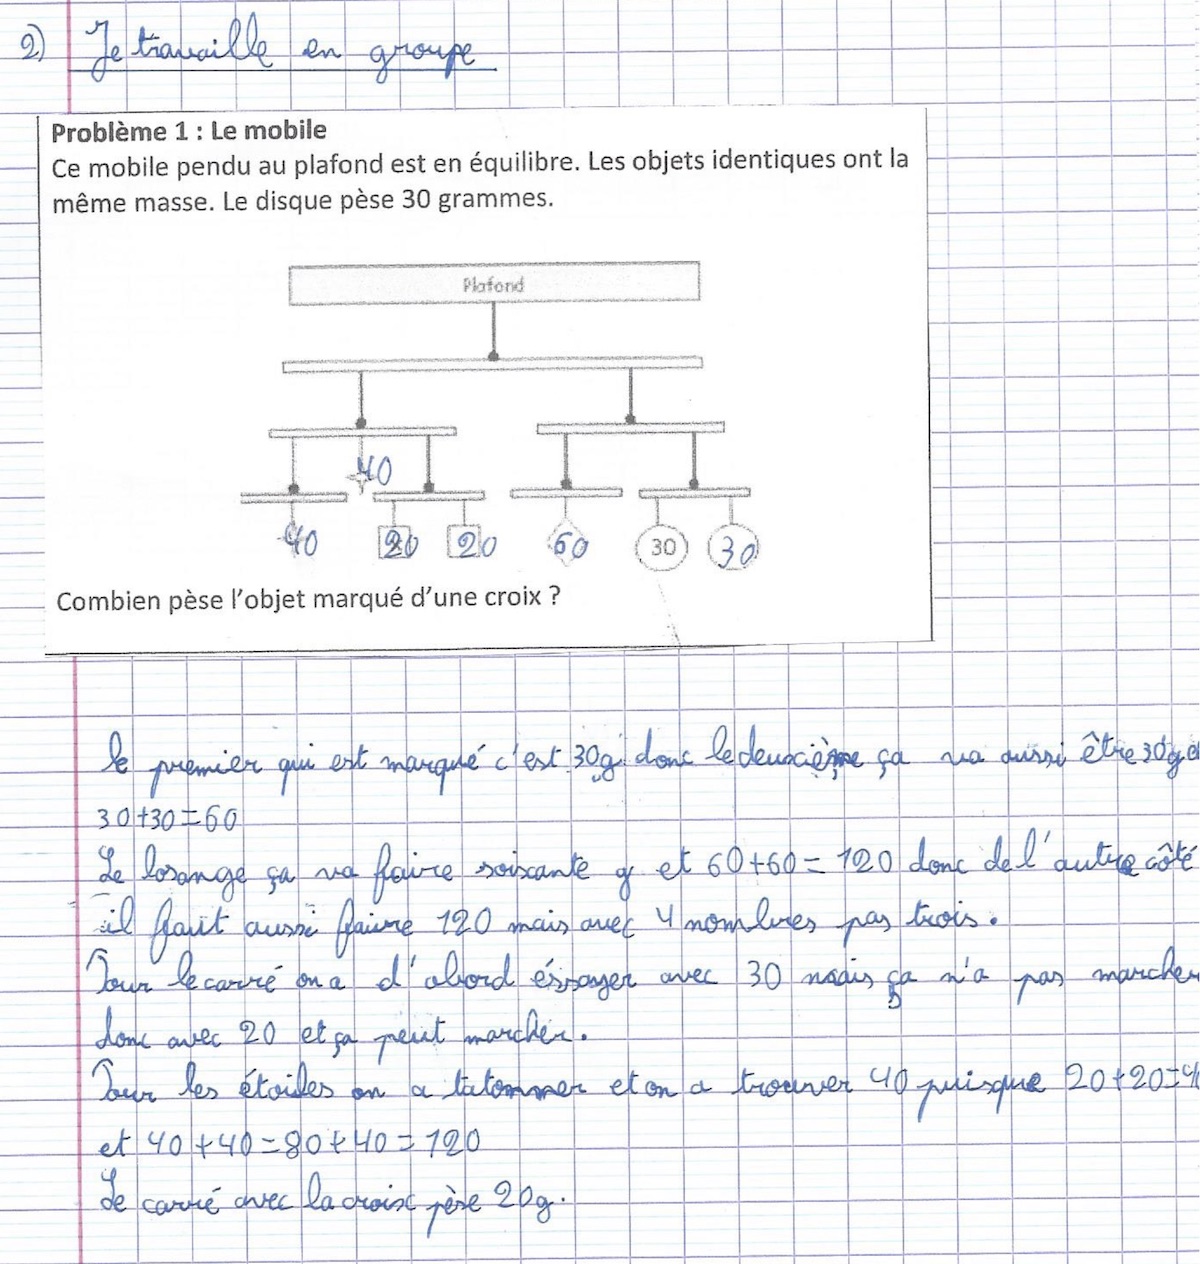 2) Je travaille en groupe
Problème 1 : Le mobile
Ce mobile pendu au plafond est en équilibre. Les objets identiques ont la
même masse. Le disque pèse 30 grammes.
Plafond
40
40 20 20 60 30 30
Combien pèse l'objet marqué d'une croix ?
le premier qui est marqué c'est 30g donc le deuxcième ça va aussi être 30g et
30+30=60
Le losange ça va faire soixante g et 60+60=120 donc de l'autre côté
il faut aussi faire 120 mais avec 4 nombres pas trois.
Pour le carré on a d'abord éssayer avec 30 mais ça n'a pas marcher
donc avec 20 et ça peut marcher.
Pour les étoiles on a tatonner et on a trouver 40 puisque 20+20=4
et 40+40=80+40=120
Le carré avec la croix pèse 20g.